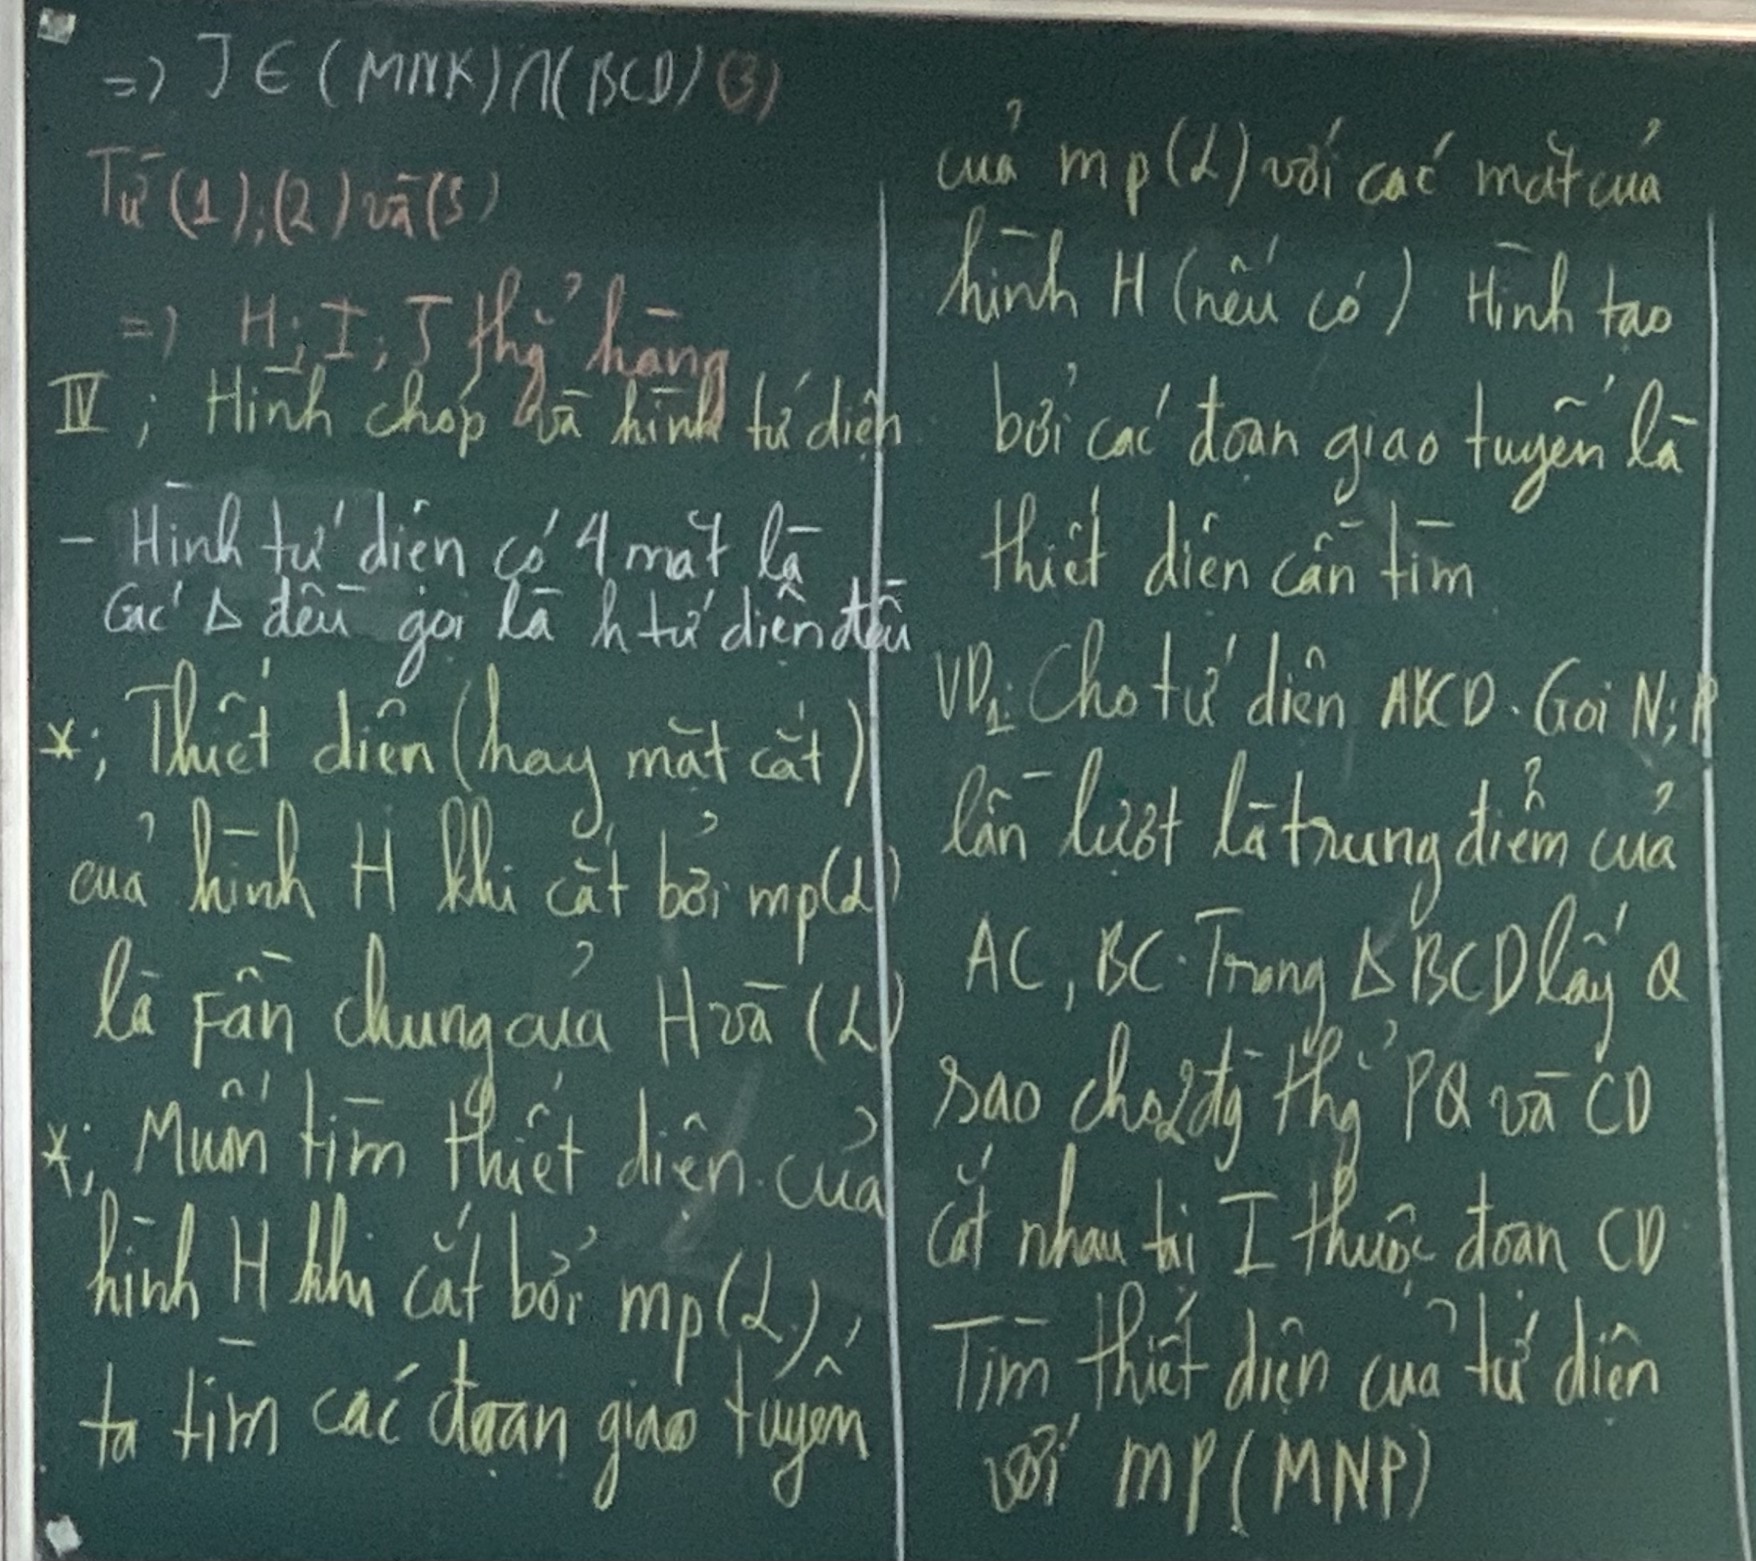 =) J ∈ (MNK) ∩ (BCD) (3)
Từ (1);(2) và (3)
=) H; I; J thg̉ hàng
IV; Hình chóp và hình tứ diện
- Hình tứ diện có 4 mặt là
các Δ đều gọi là h tứ diện đều
*; Thiết diện (hay mặt cắt)
của hình H khi cắt bởi mp(α)
là Fần chung của H và (α)
*; Muốn tìm thiết diện của
hình H khi cắt bởi mp(α),
ta tìm các đoạn giao tuyến
của mp(α) với các mặt của
hình H (nếu có) Hình tạo
bởi các đoạn giao tuyến là
thiết diện cần tìm
VD1: Cho tứ diện ABCD. Gọi N; P
lần lượt là trung điểm của
AC, BC. Trong Δ BCD lấy Q
sao cho 2 đg̀ thg̉ PQ và CD
cắt nhau tại I thuộc đoạn CD
Tìm thiết diện của tứ diện
với mp(MNP)